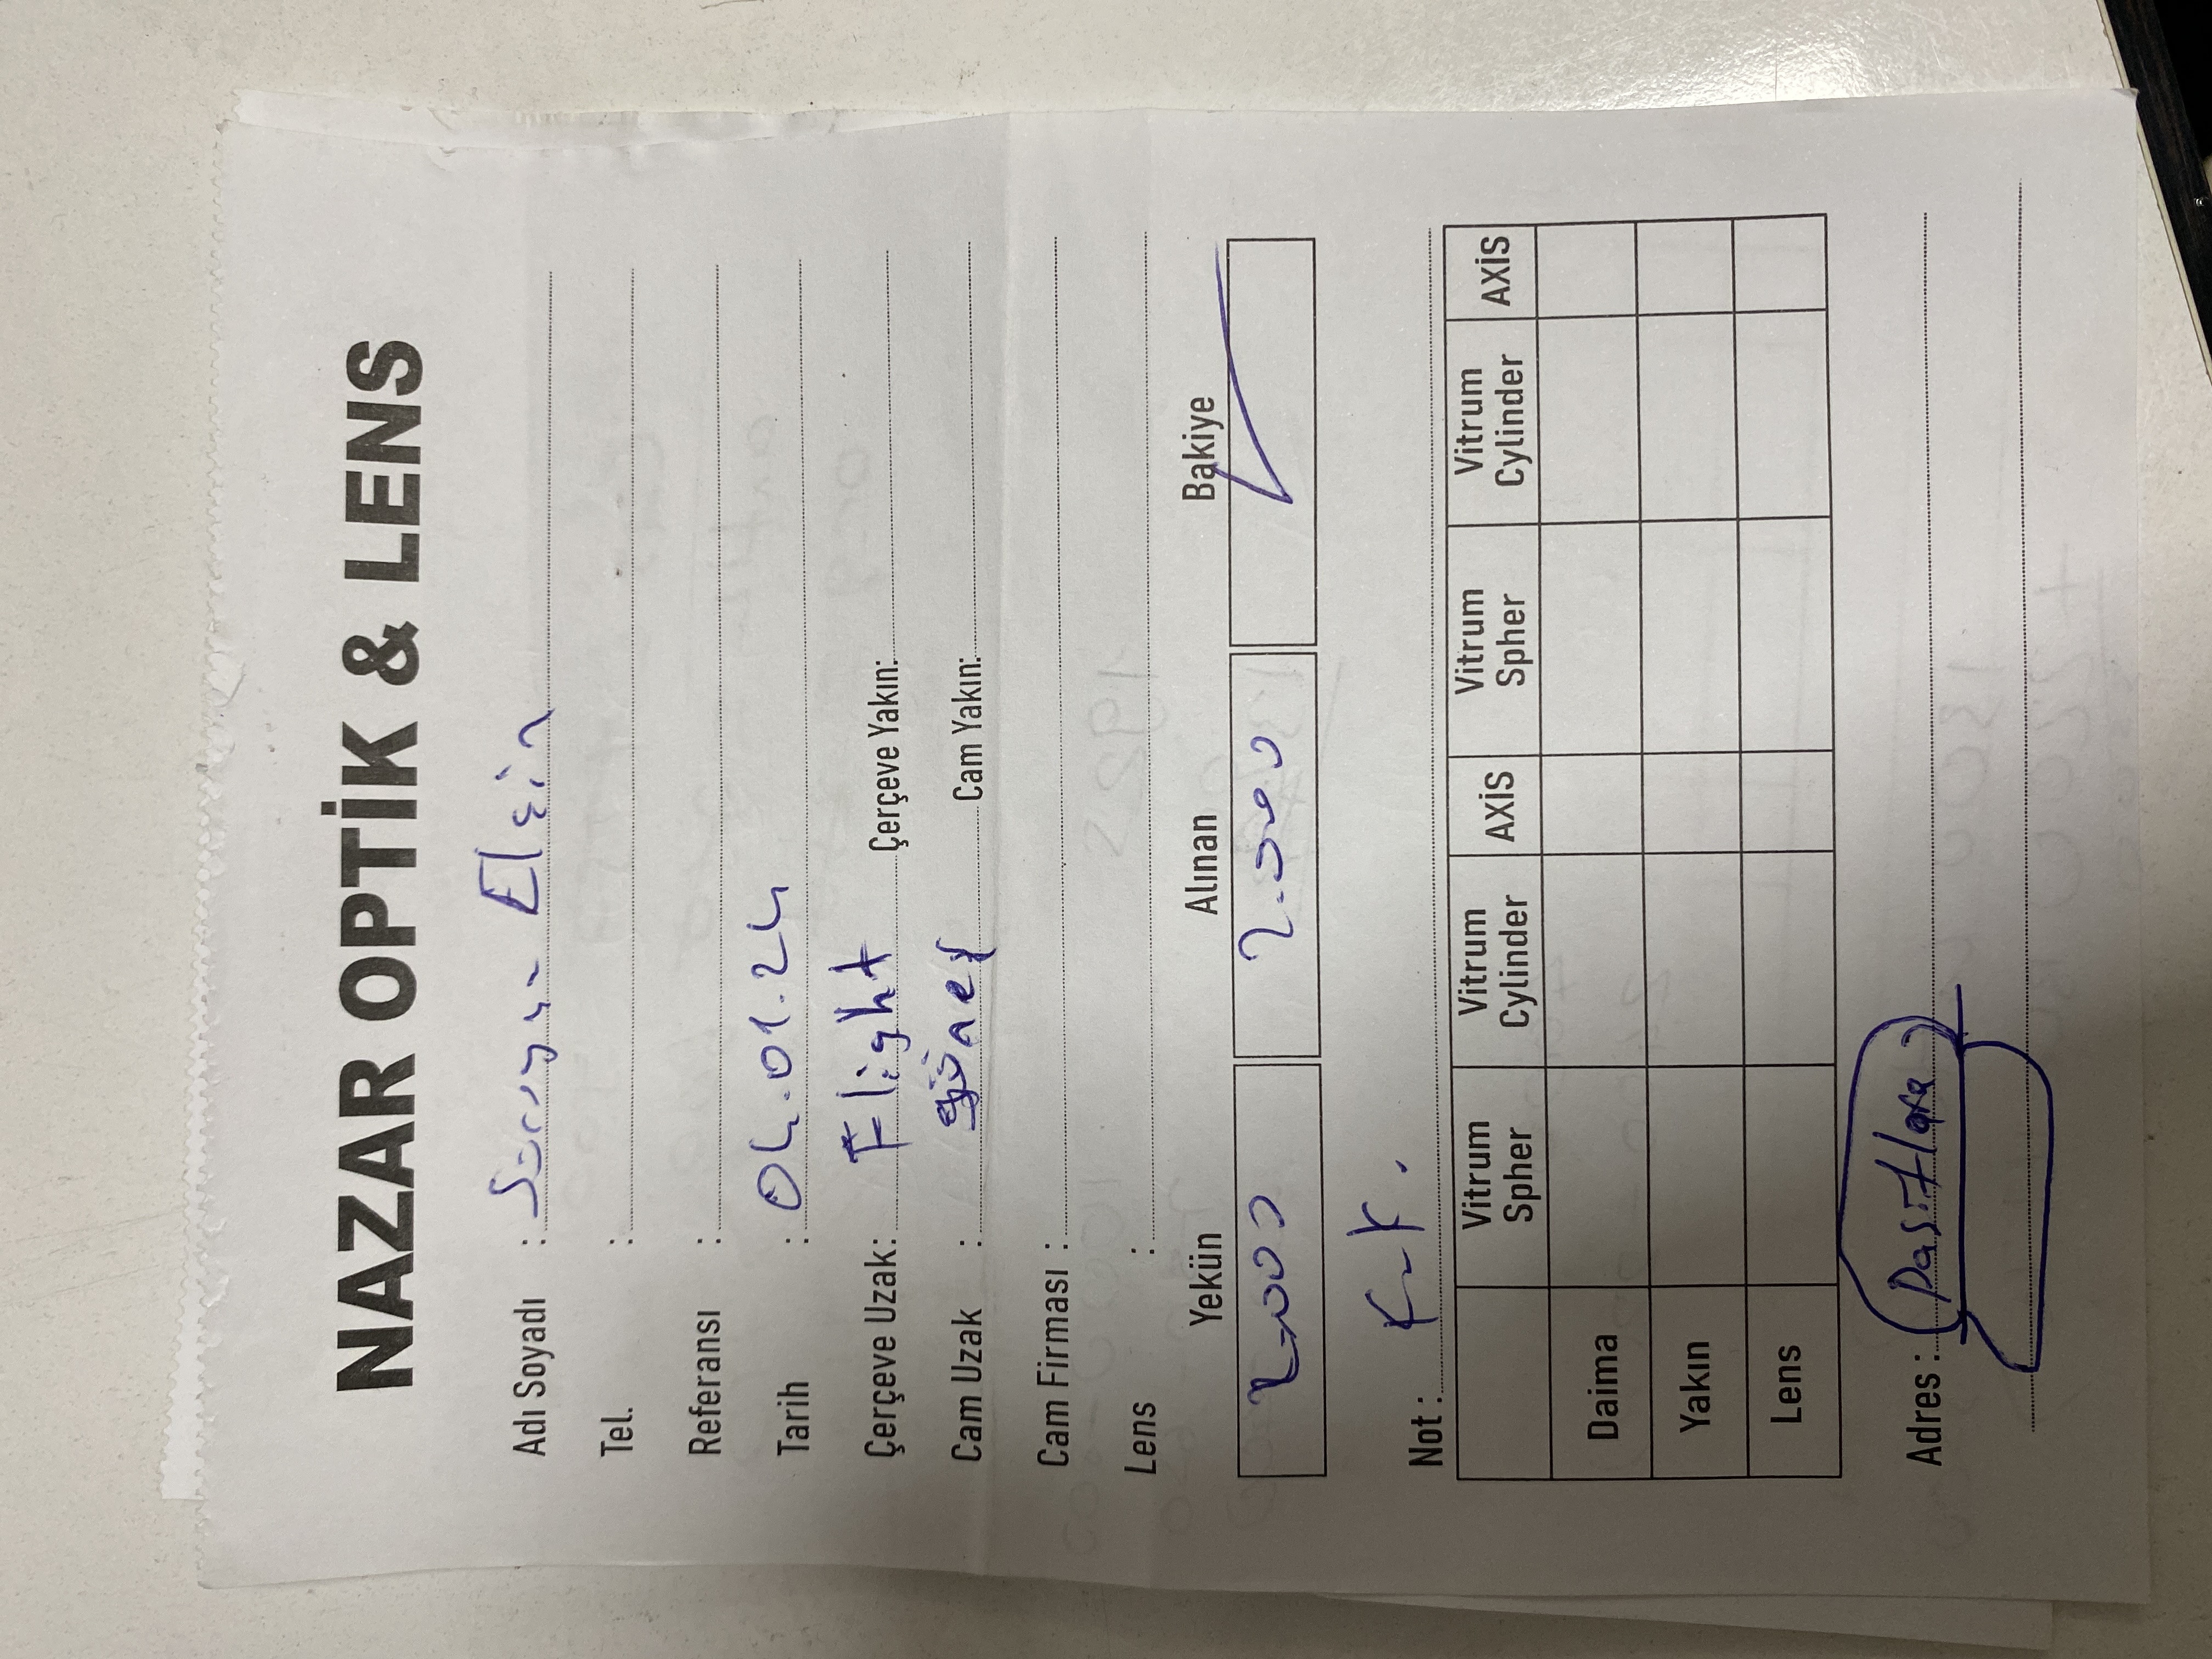 NAZAR OPTİK & LENS
Adı Soyadı : Elçin
Tel. :
Referansı :
Tarih : 04.01.24
Çerçeve Uzak: Flight Çerçeve Yakın:
Cam Uzak : güneş Cam Yakın:
Cam Firması :
Lens :
Yekün Alınan Bakiye
2.000 2.000 ✓
Not : K.K.
Vitrum Spher Vitrum Cylinder AXİS Vitrum Spher Vitrum Cylinder AXİS
Daima
Yakın
Lens
Adres : Pasiflora